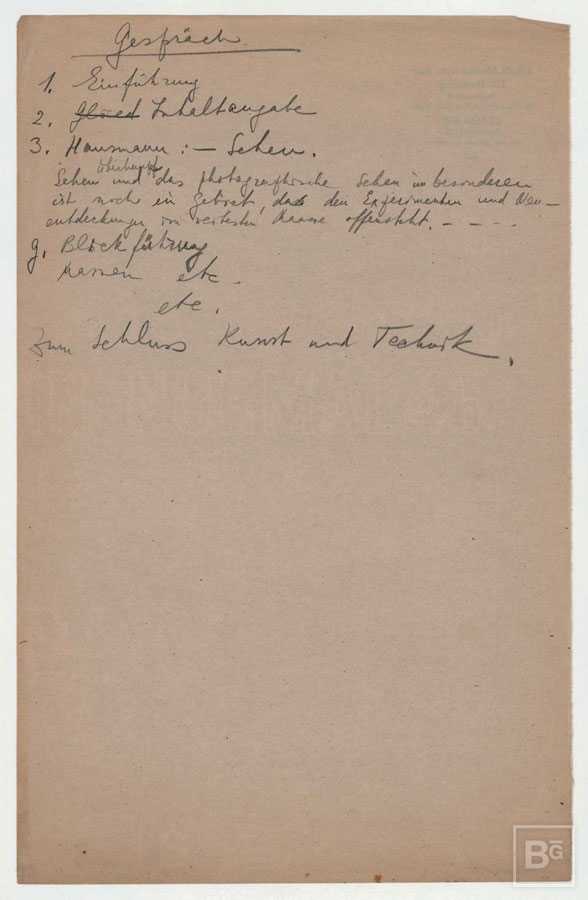 Gespräch.
1. Einführung
2. Inhaltangabe
3. Hausmann: — Sehen.
überhaupt
Sehen und das photographische Sehen im besonderen
ist noch ein Gebiet, dass den Experimenten und Neu—
entdeckungen in Maase offensteht. — — — .
g. Blickführung
Massen etc.
etc.
Zum Schluss Kunst und Technik.
BG